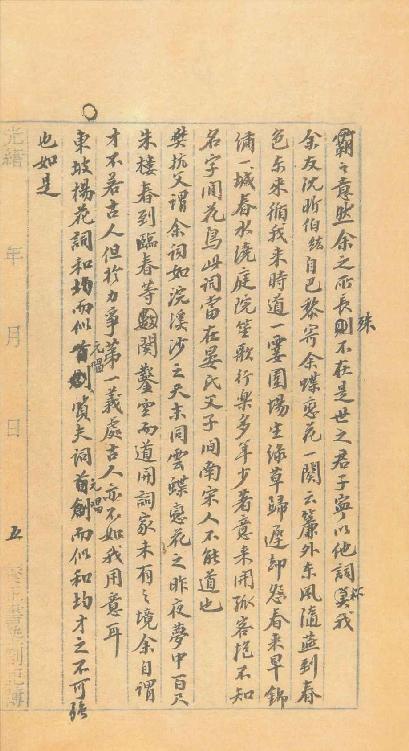 霸之意然余之所長則殊不在是世之君子寧以他詞稱我
余友沈昕伯紘自巴黎寄余蝶戀花一闋云簾外東風隨燕到春
色東來循我來時道一霎圍場生綠草歸遲却怨春來早錦
繡一城春水遶庭院笙歌行樂多年少著意來開孤客抱不知
名字閒花鳥此詞當在晏氏父子間南宋人不能道也
樊抗父謂余詞如浣溪沙之天末同雲蝶戀花之昨夜夢中百尺
朱樓春到臨春等闋鑿空而道開詞家未有之境余自謂
才不若古人但於力爭第一義處古人亦不如我用意耳
東坡楊花詞和均而似元唱質夫詞元唱而似和均才之不可強
也如是
光緒 年 月 日 五